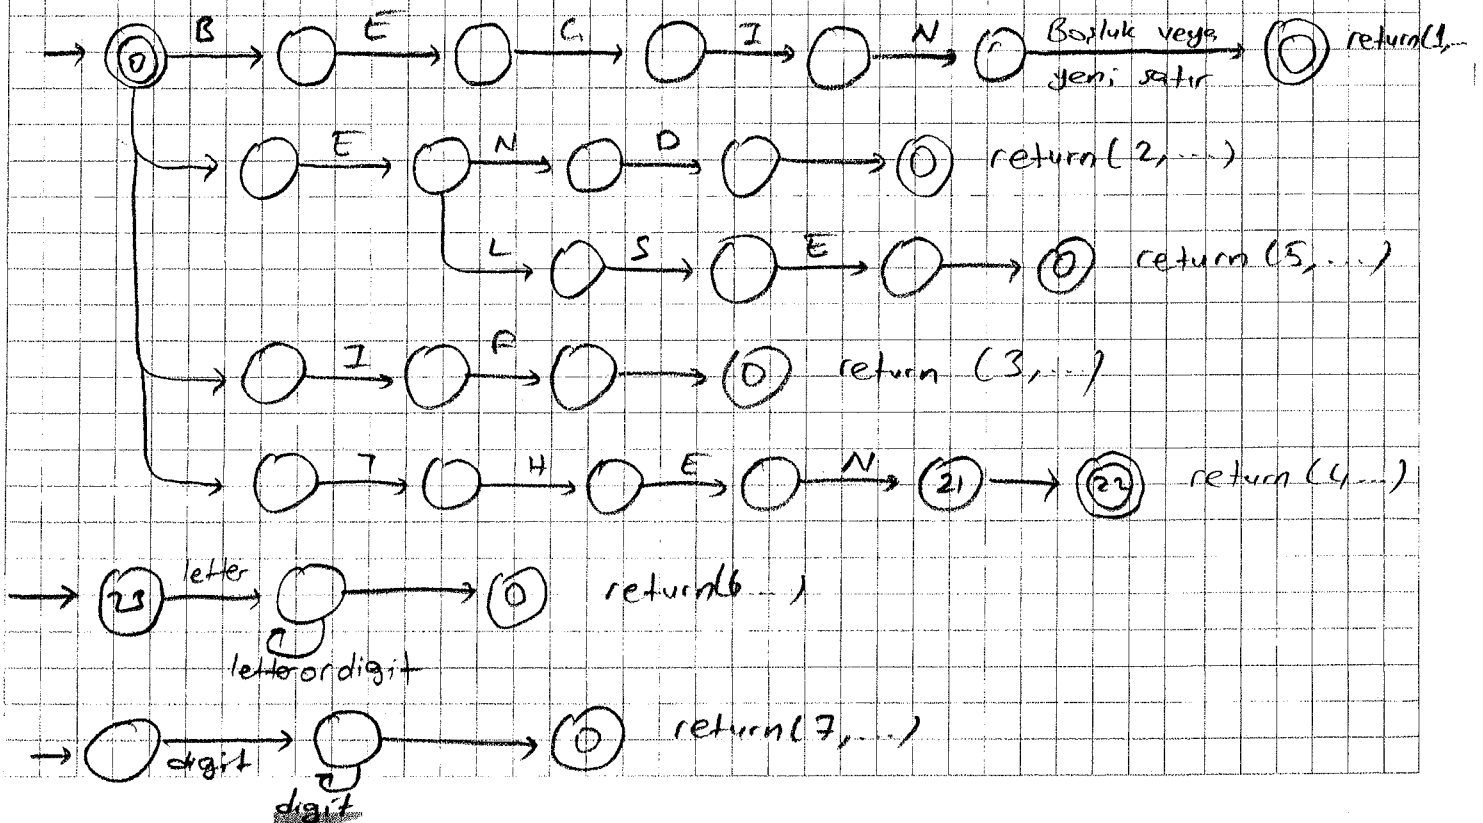 0 B E G I N Boşluk veya yeni satır return(1,...
E N D return(2,...)
L S E return(5,...)
I F return (3,...)
T H E N 21 22 return(4...)
23 letter return(6...)
letter or digit
digit return(7,...)
digit